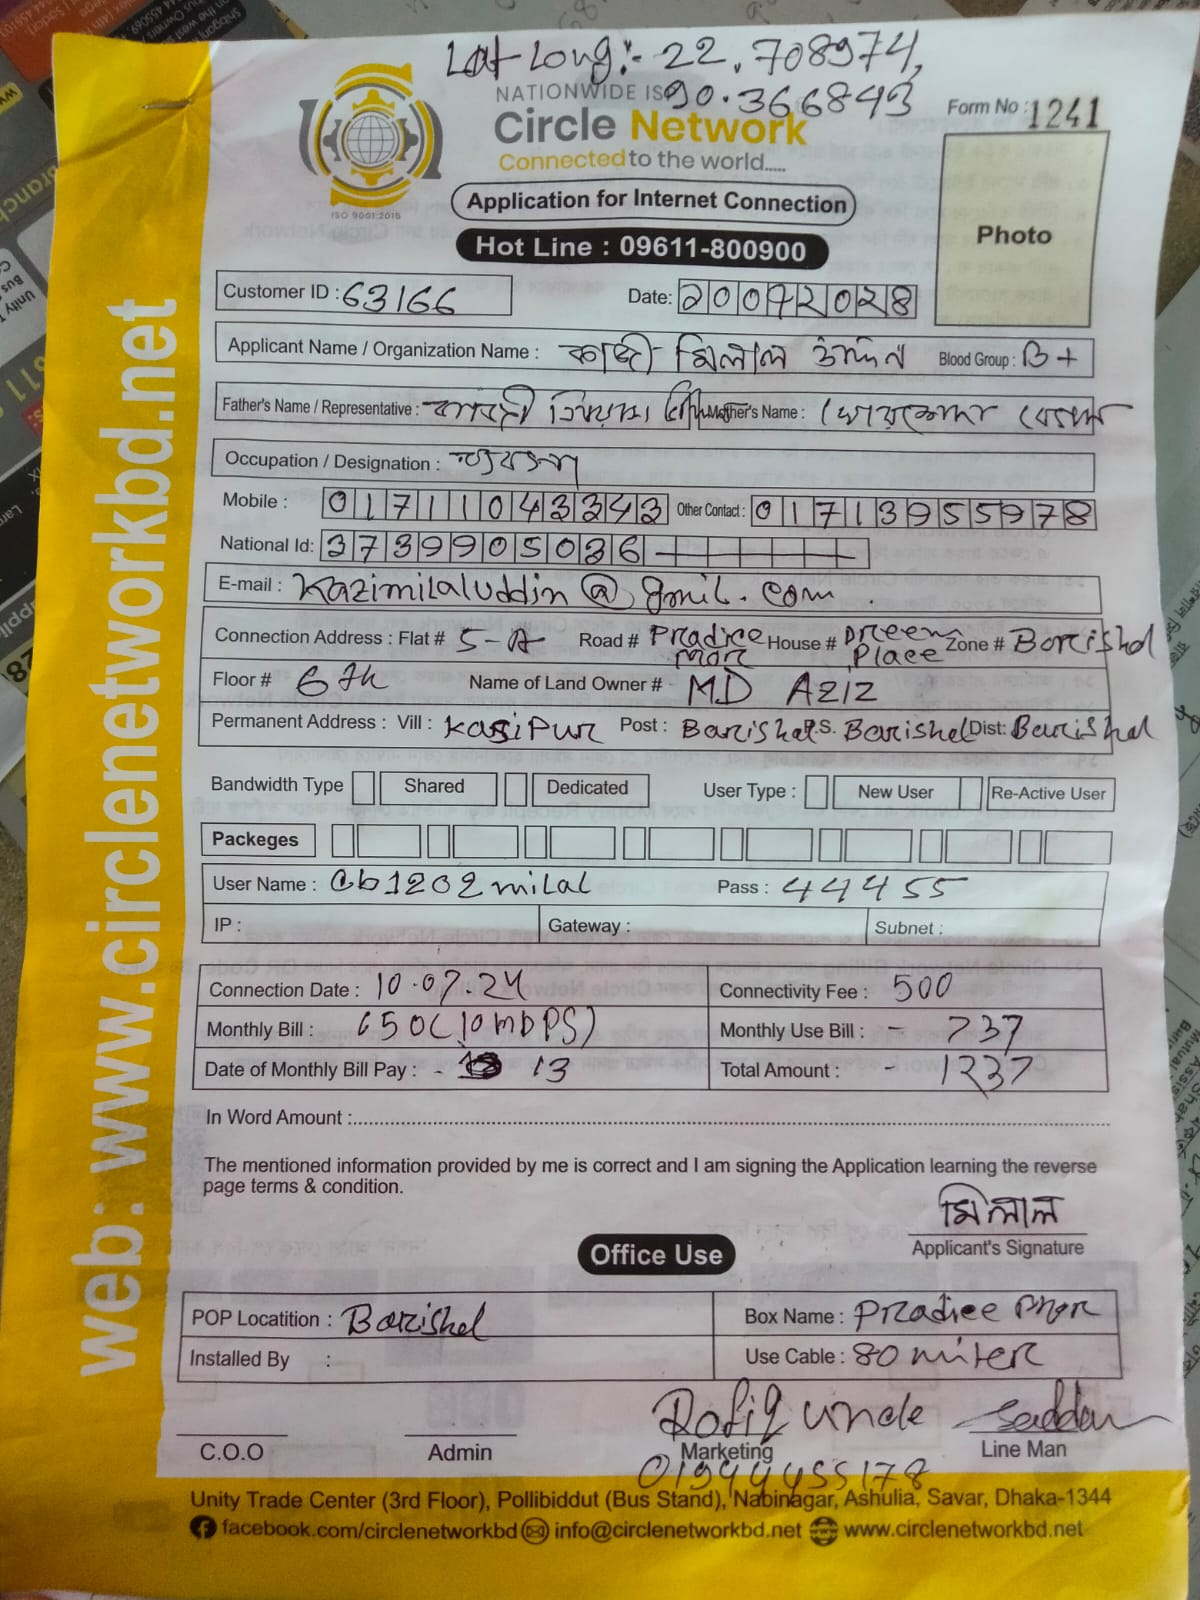 Lat-Long:- 22.708974,
90.366843
NATIONWIDE IS
Circle Network
Connected to the world.....
ISO 9001:2015
Form No : 1241
Application for Internet Connection
Hot Line : 09611-800900
Photo
Customer ID : 63166
Date:
Applicant Name / Organization Name : কাজী মিলাল উদ্দিন Blood Group : B+
Father's Name / Representative : Mother's Name : বেগম
Occupation / Designation :
Mobile : 01711043343 Other Contact : 01713955978
National Id: 3739905036
E-mail : Kazimilaluddin@gmil.com
Connection Address : Flat # 5-A Road # House # Place Zone # Barishal
Floor # 6th Name of Land Owner # MD AZIZ
Permanent Address : Vill : Kasipur Post : Barishal P.S. Barishal Dist: Barishal
Bandwidth Type Shared Dedicated User Type : New User Re-Active User
Packeges
User Name : Cb1202milal Pass : 44455
IP : Gateway : Subnet :
Connection Date : 10.07.24 Connectivity Fee : 500
Monthly Bill : 650(10mbPS) Monthly Use Bill : - 737
Date of Monthly Bill Pay : - 13 Total Amount : - 1237
In Word Amount :
The mentioned information provided by me is correct and I am signing the Application learning the reverse
page terms & condition.
মিলাল
Applicant's Signature
Office Use
POP Locatition : Barishal Box Name :
Installed By : Use Cable : 80 miter
Rofiq uncle Saddam
C.O.O Admin Marketing Line Man
01944455178
Unity Trade Center (3rd Floor), Pollibiddut (Bus Stand), Nabinagar, Ashulia, Savar, Dhaka-1344
facebook.com/circlenetworkbd info@circlenetworkbd.net www.circlenetworkbd.net
web: www.circlenetworkbd.net